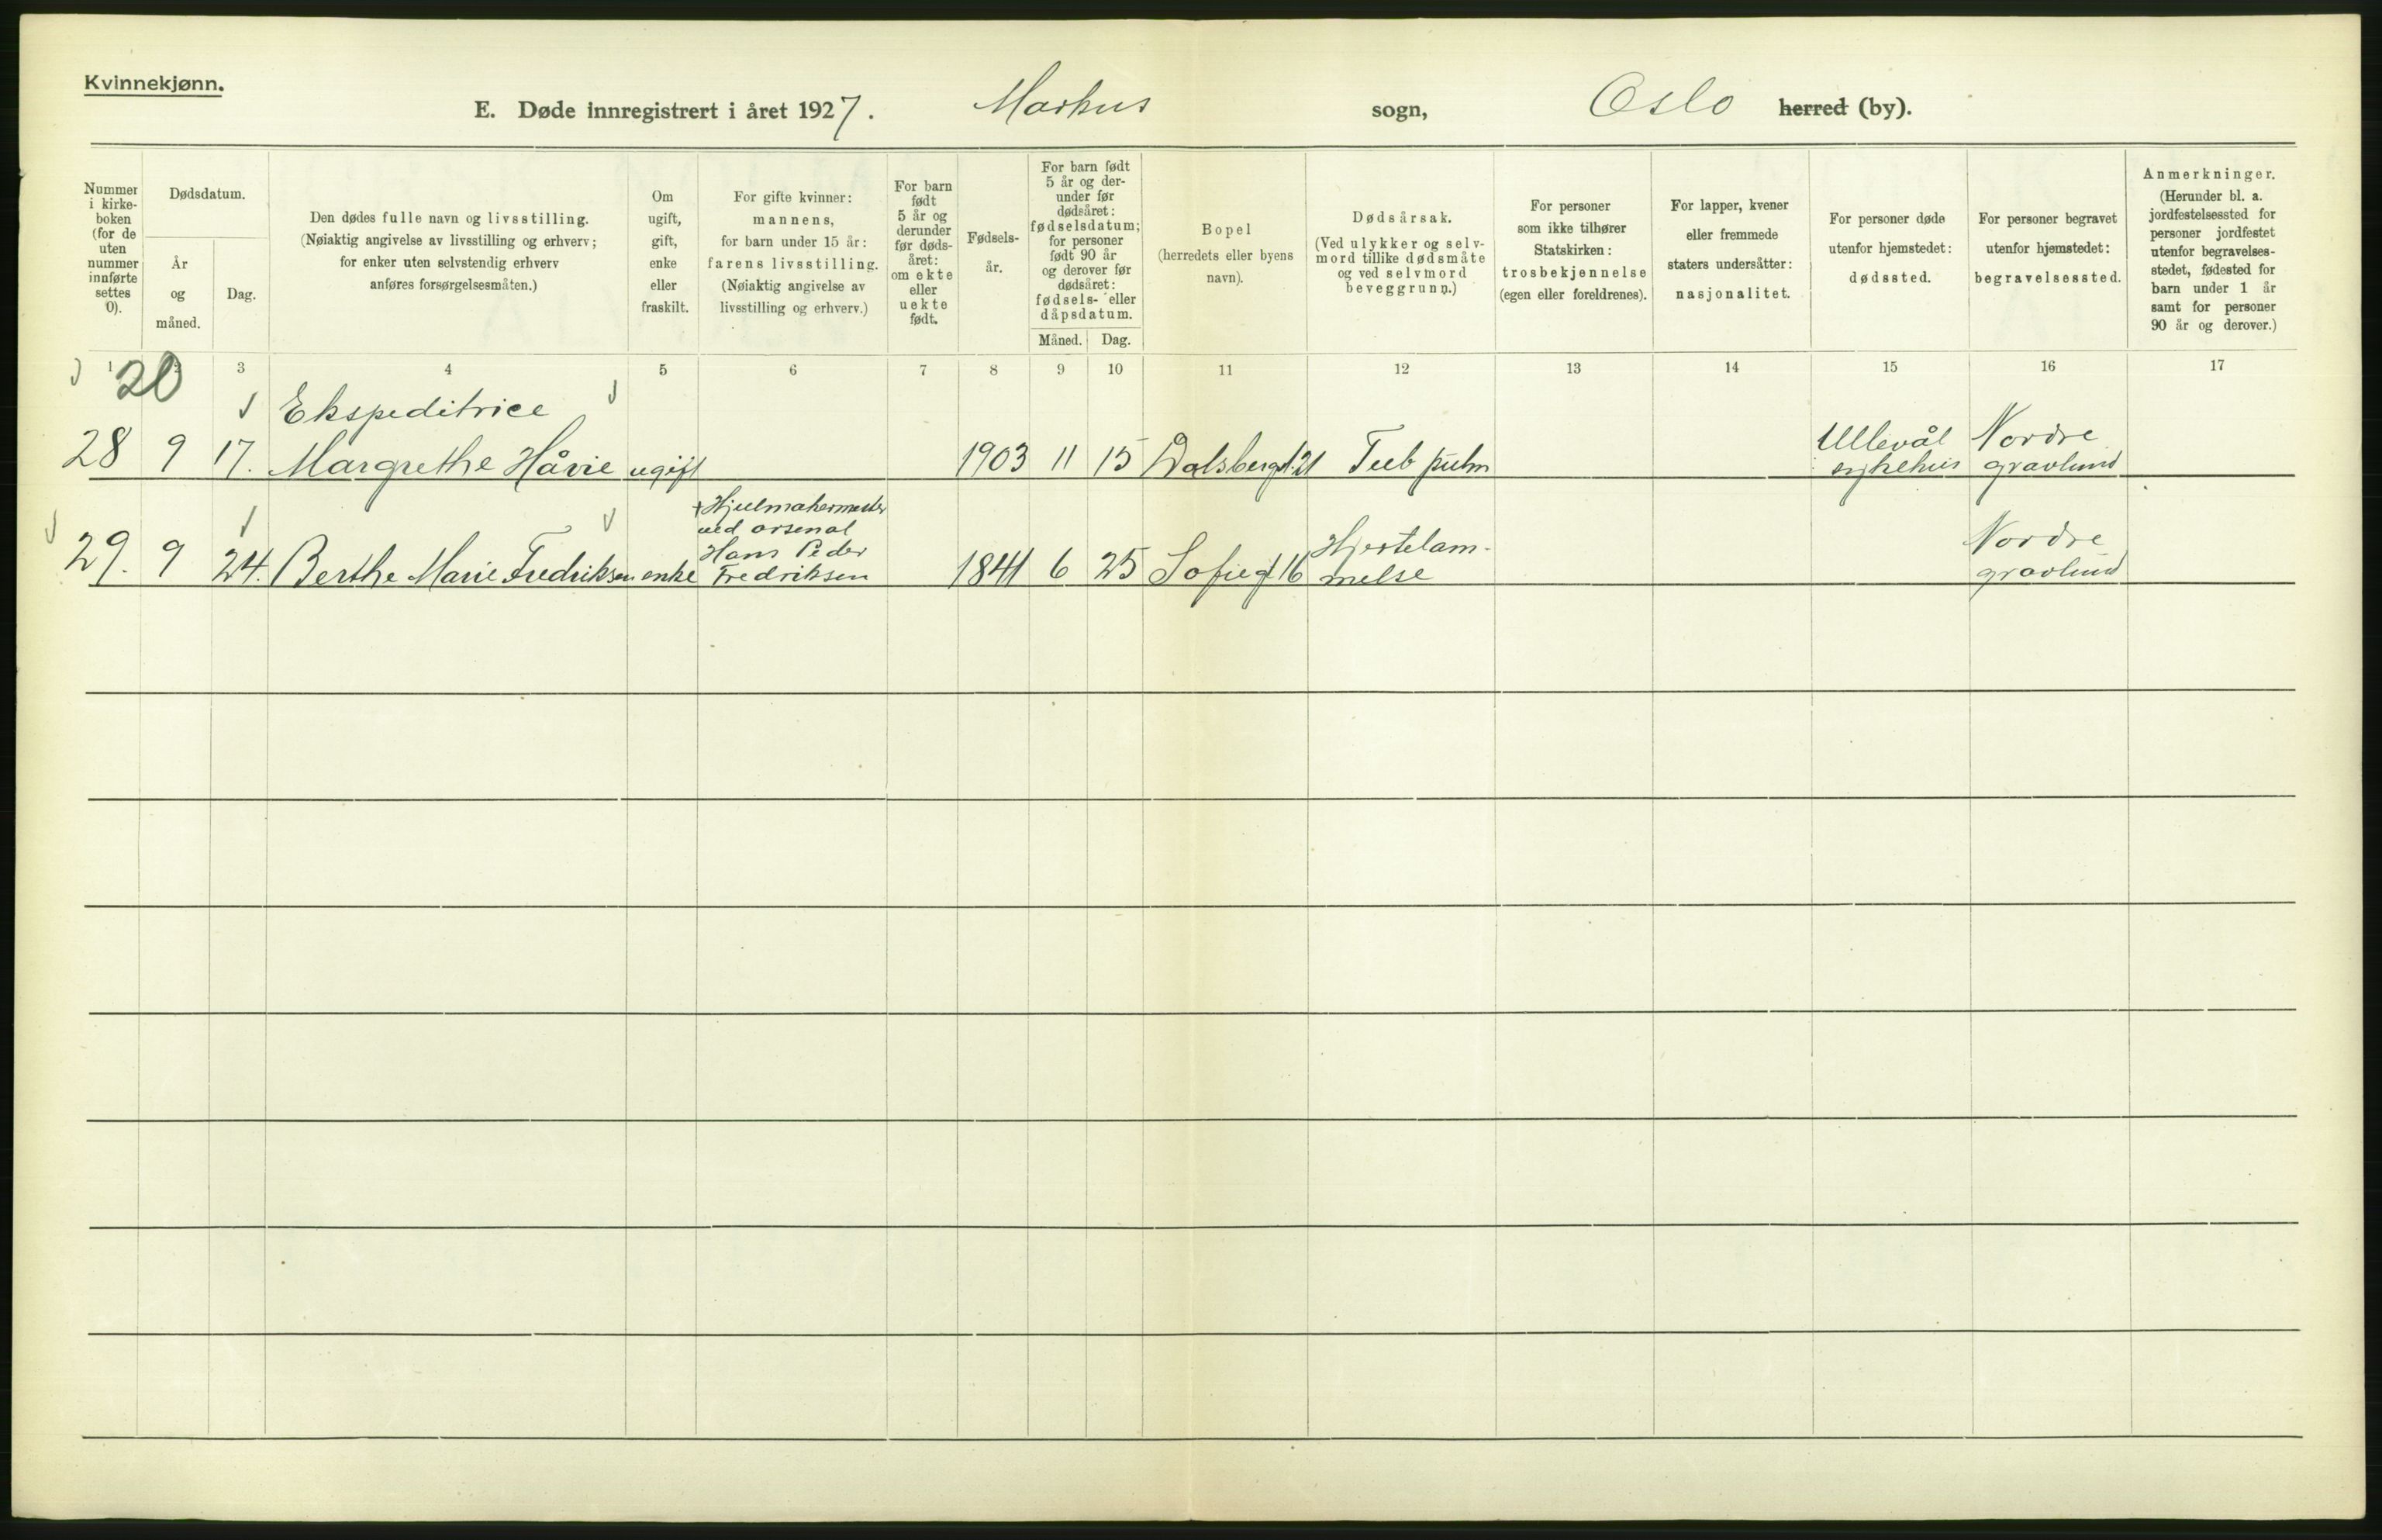 Kvinnekjønn.
E. Døde innregistrert i året 1927. Markus sogn, Oslo herred (by).
Nummer
i kirke-
boken
(for de
uten
nummer
innførte
settes
0).
Dødsdatum.
År
og
måned.
Dag.
Den dødes fulle navn og livsstilling.
(Nøiaktig angivelse av livsstilling og erhverv;
for enker uten selvstendig erhverv
anføres forsørgelsesmåten.)
Om
ugift,
gift,
enke
eller
fraskilt.
For gifte kvinner:
mannens,
for barn under 15 år:
farens livsstilling.
(Nøiaktig angivelse av
livsstilling og erhverv.)
For barn
født
5 år og
derunder
før døds-
året:
om ekte
eller
uekte
født.
Fødsels-
år.
For barn født
5 år og der-
under før
dødsåret:
fødselsdatum;
for personer
født 90 år
og derover før
dødsåret:
fødsels- eller
dåpsdatum.
Måned. Dag.
Bopel
(herredets eller byens
navn).
Dødsårsak.
(Ved ulykker og selv-
mord tillike dødsmåte
og ved selvmord
beveggrunn.)
For personer
som ikke tilhører
Statskirken:
trosbekjennelse
(egen eller foreldrenes).
For lapper, kvener
eller fremmede
staters undersåtter:
nasjonalitet.
For personer døde
utenfor hjemstedet:
dødssted.
For personer begravet
utenfor hjemstedet:
begravelsessted.
Anmerkninger.
(Herunder bl. a.
jordfestelsessted for
personer jordfestet
utenfor begravelses-
stedet, fødested for
barn under 1 år
samt for personer
90 år og derover.)
1 2 3 4 5 6 7 8 9 10 11 12 13 14 15 16 17
20
Ekspeditrice
28 9 17. Margrethe Håvie ugift 1903 11 15 Dalsbergst. 21 Tub pulm
Ullevål
sykehus
Nordre
gravlund
29. 9 24. Berthe Marie Fredriksen enke
+ Hjulmakermester
ved arsenal
Hans Peder
Fredriksen
1841 6 25 Sofiegt 16
Hjertelam-
melse
Nordre
gravlund